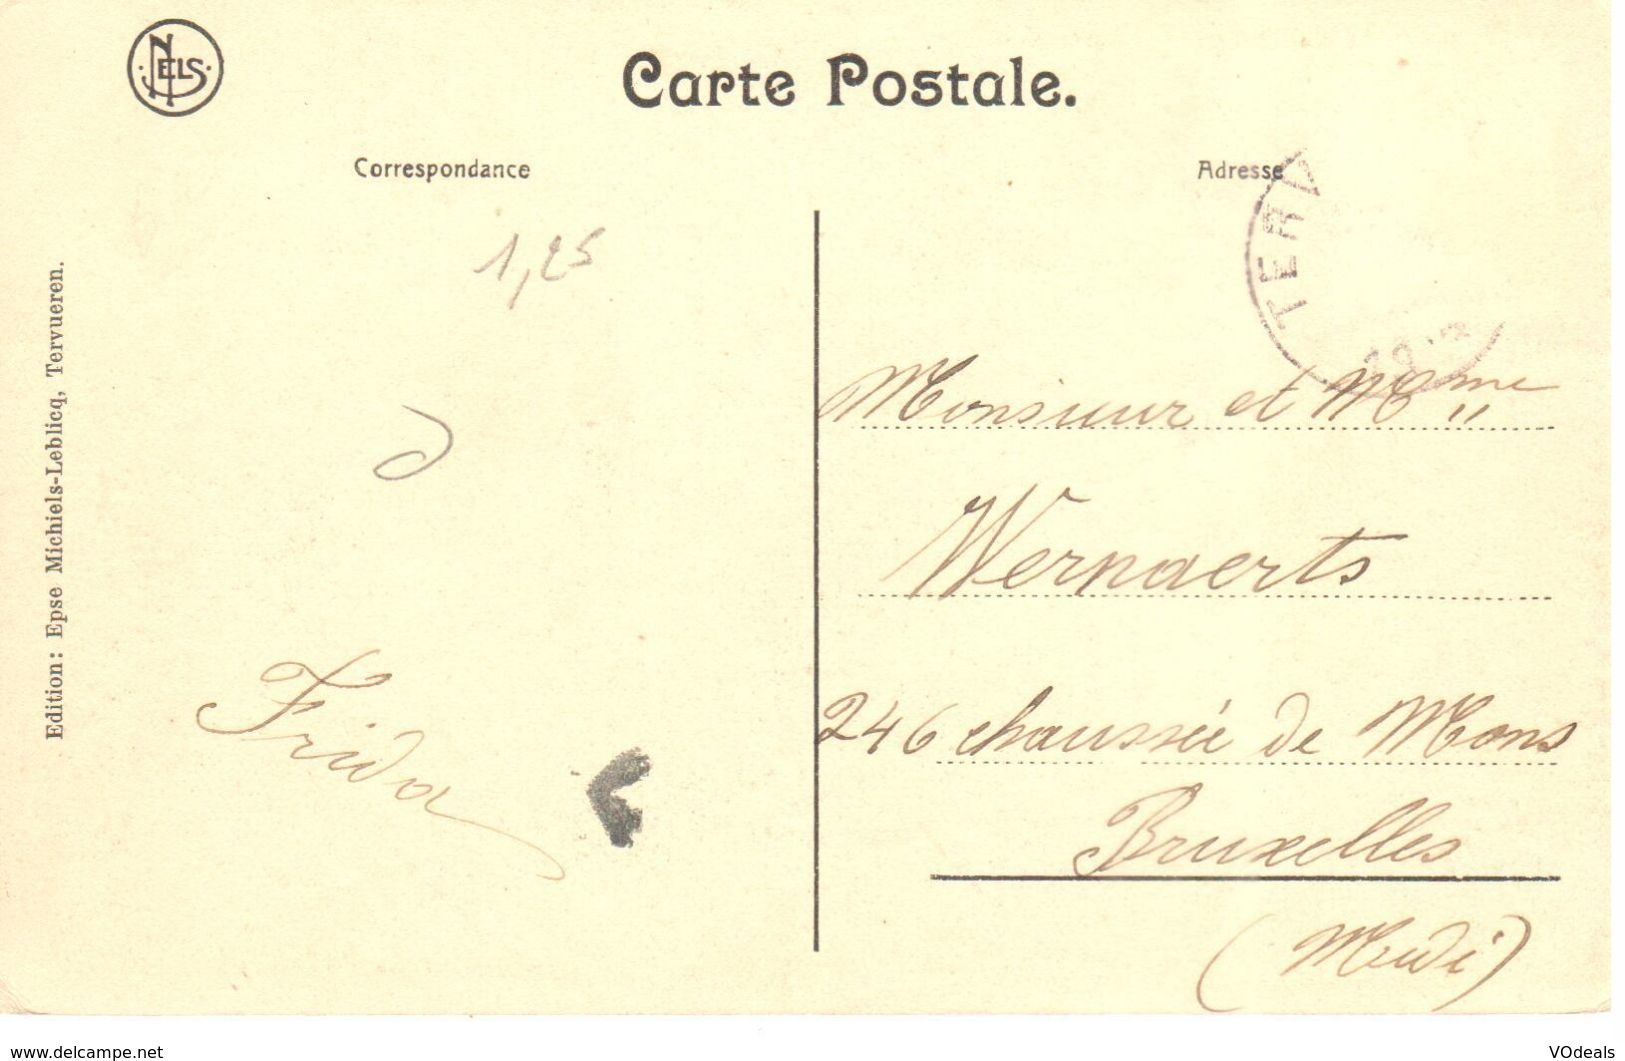 NELS
Carte Postale.
Correspondance
Adresse
TERV
1,25
Edition: Epse Michiels-Leblicq, Tervueren.
Monsieur et Mme
Wernaerts
246 chaussée de Mons
Bruxelles
(Midi)
Frida
www.delcampe.net
VOdeals